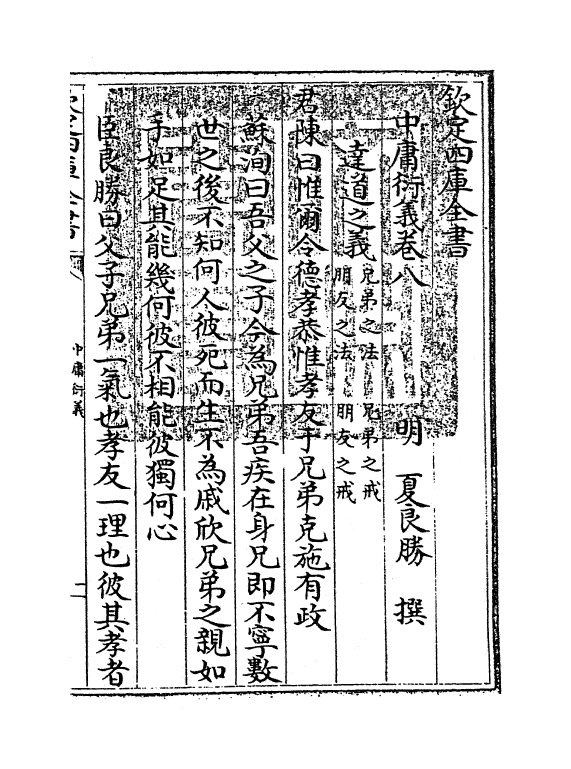 欽定四庫全書
中庸衍義卷八
明　夏良勝　撰
達道之義
兄弟之法　兄弟之戒
朋友之法　朋友之戒
君陳曰惟爾令德孝恭惟孝友于兄弟克施有政
蘇洵曰吾父之子今為兄弟吾疾在身兄即不寧數
世之後不知何人彼死而生不為戚欣兄弟之親如
手如足其能幾何彼不相能彼獨何心
臣良勝曰父子兄弟一氣也孝友一理也彼其孝者
欽定四庫全書
中庸衍義